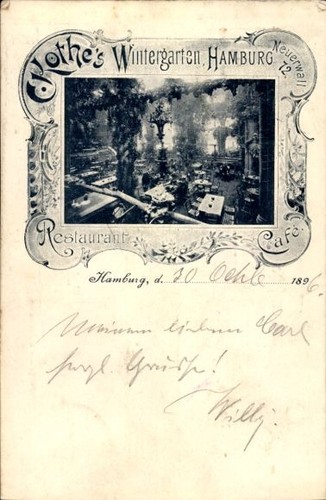 Kothe's Wintergarten, HAMBURG
Neuerwall 72.
Restaurant Café
Hamburg, d. 30 Octb 1896.
Meinem lieben Carl
herzl. Grüsse!
Willy.